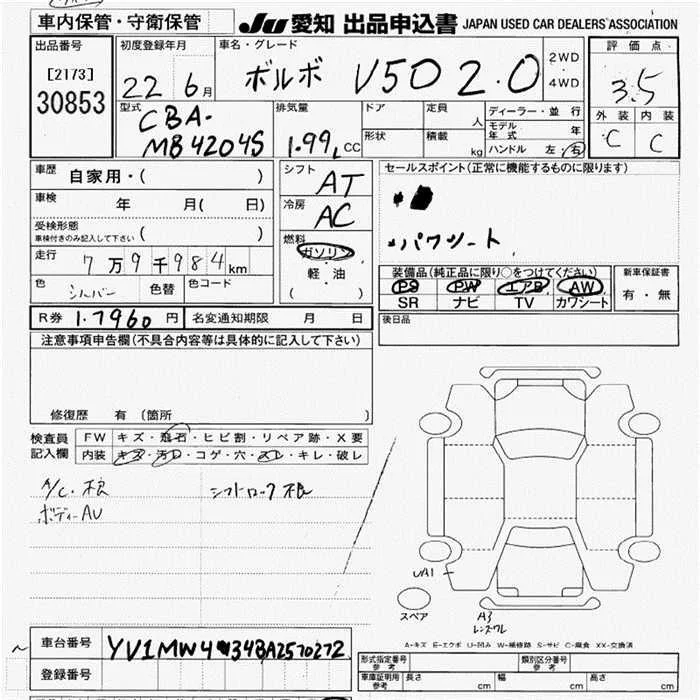 車内保管・守衛保管
JU 愛知 出品申込書 JAPAN USED CAR DEALERS ASSOCIATION
出品番号
[2173]
30853
初度登録年月
22 6月
車名・グレード
ボルボ V50 2.0
2WD
4WD
評価点
3.5
外装 内装
C C
型式
CBA-
MB4204S
排気量
1.99L CC
ドア
定員
人
形状
積載
kg
ディーラー・並行
モデル年式 年
ハンドル 左・右
車歴
自家用・( )
車検 年 月( 日)
受検形態
車検付きのみ記入して下さい ( )
走行
7万9千984km
色 シルバー 色替 色コード
シフト
AT
冷房
AC
燃料
ガソリン
軽・油
( )
セールスポイント(正常に機能するものに限ります)
・パワシート
装備品(純正品に限り○をつけてください)
PS PW エアB AW
SR ナビ TV カワシート
新車保証書
有・無
R券 1.7960 円 名変通知期限 月 日
後日品
注意事項申告欄(不具合内容等は具体的に記入して下さい)
修復歴 有(箇所 )
検査員
記入欄
FW キズ・飛石・ヒビ割・リペア跡・X要
内装 キズ・汚レ・コゲ・穴・スレ・キレ・破レ
A/C・根
ボディーAU
シフトロック根
UA1
スペア
A3
レンズワレ
A-キズ E-エクボ U-凹み W-補修跡 S-サビ C-腐食 XX-交換済
車台番号 YV1MW434BA2570272
登録番号
形式指定番号
参考
類別区分番号
参考
車庫証明用
参考
長さ cm 幅 cm 高さ cm